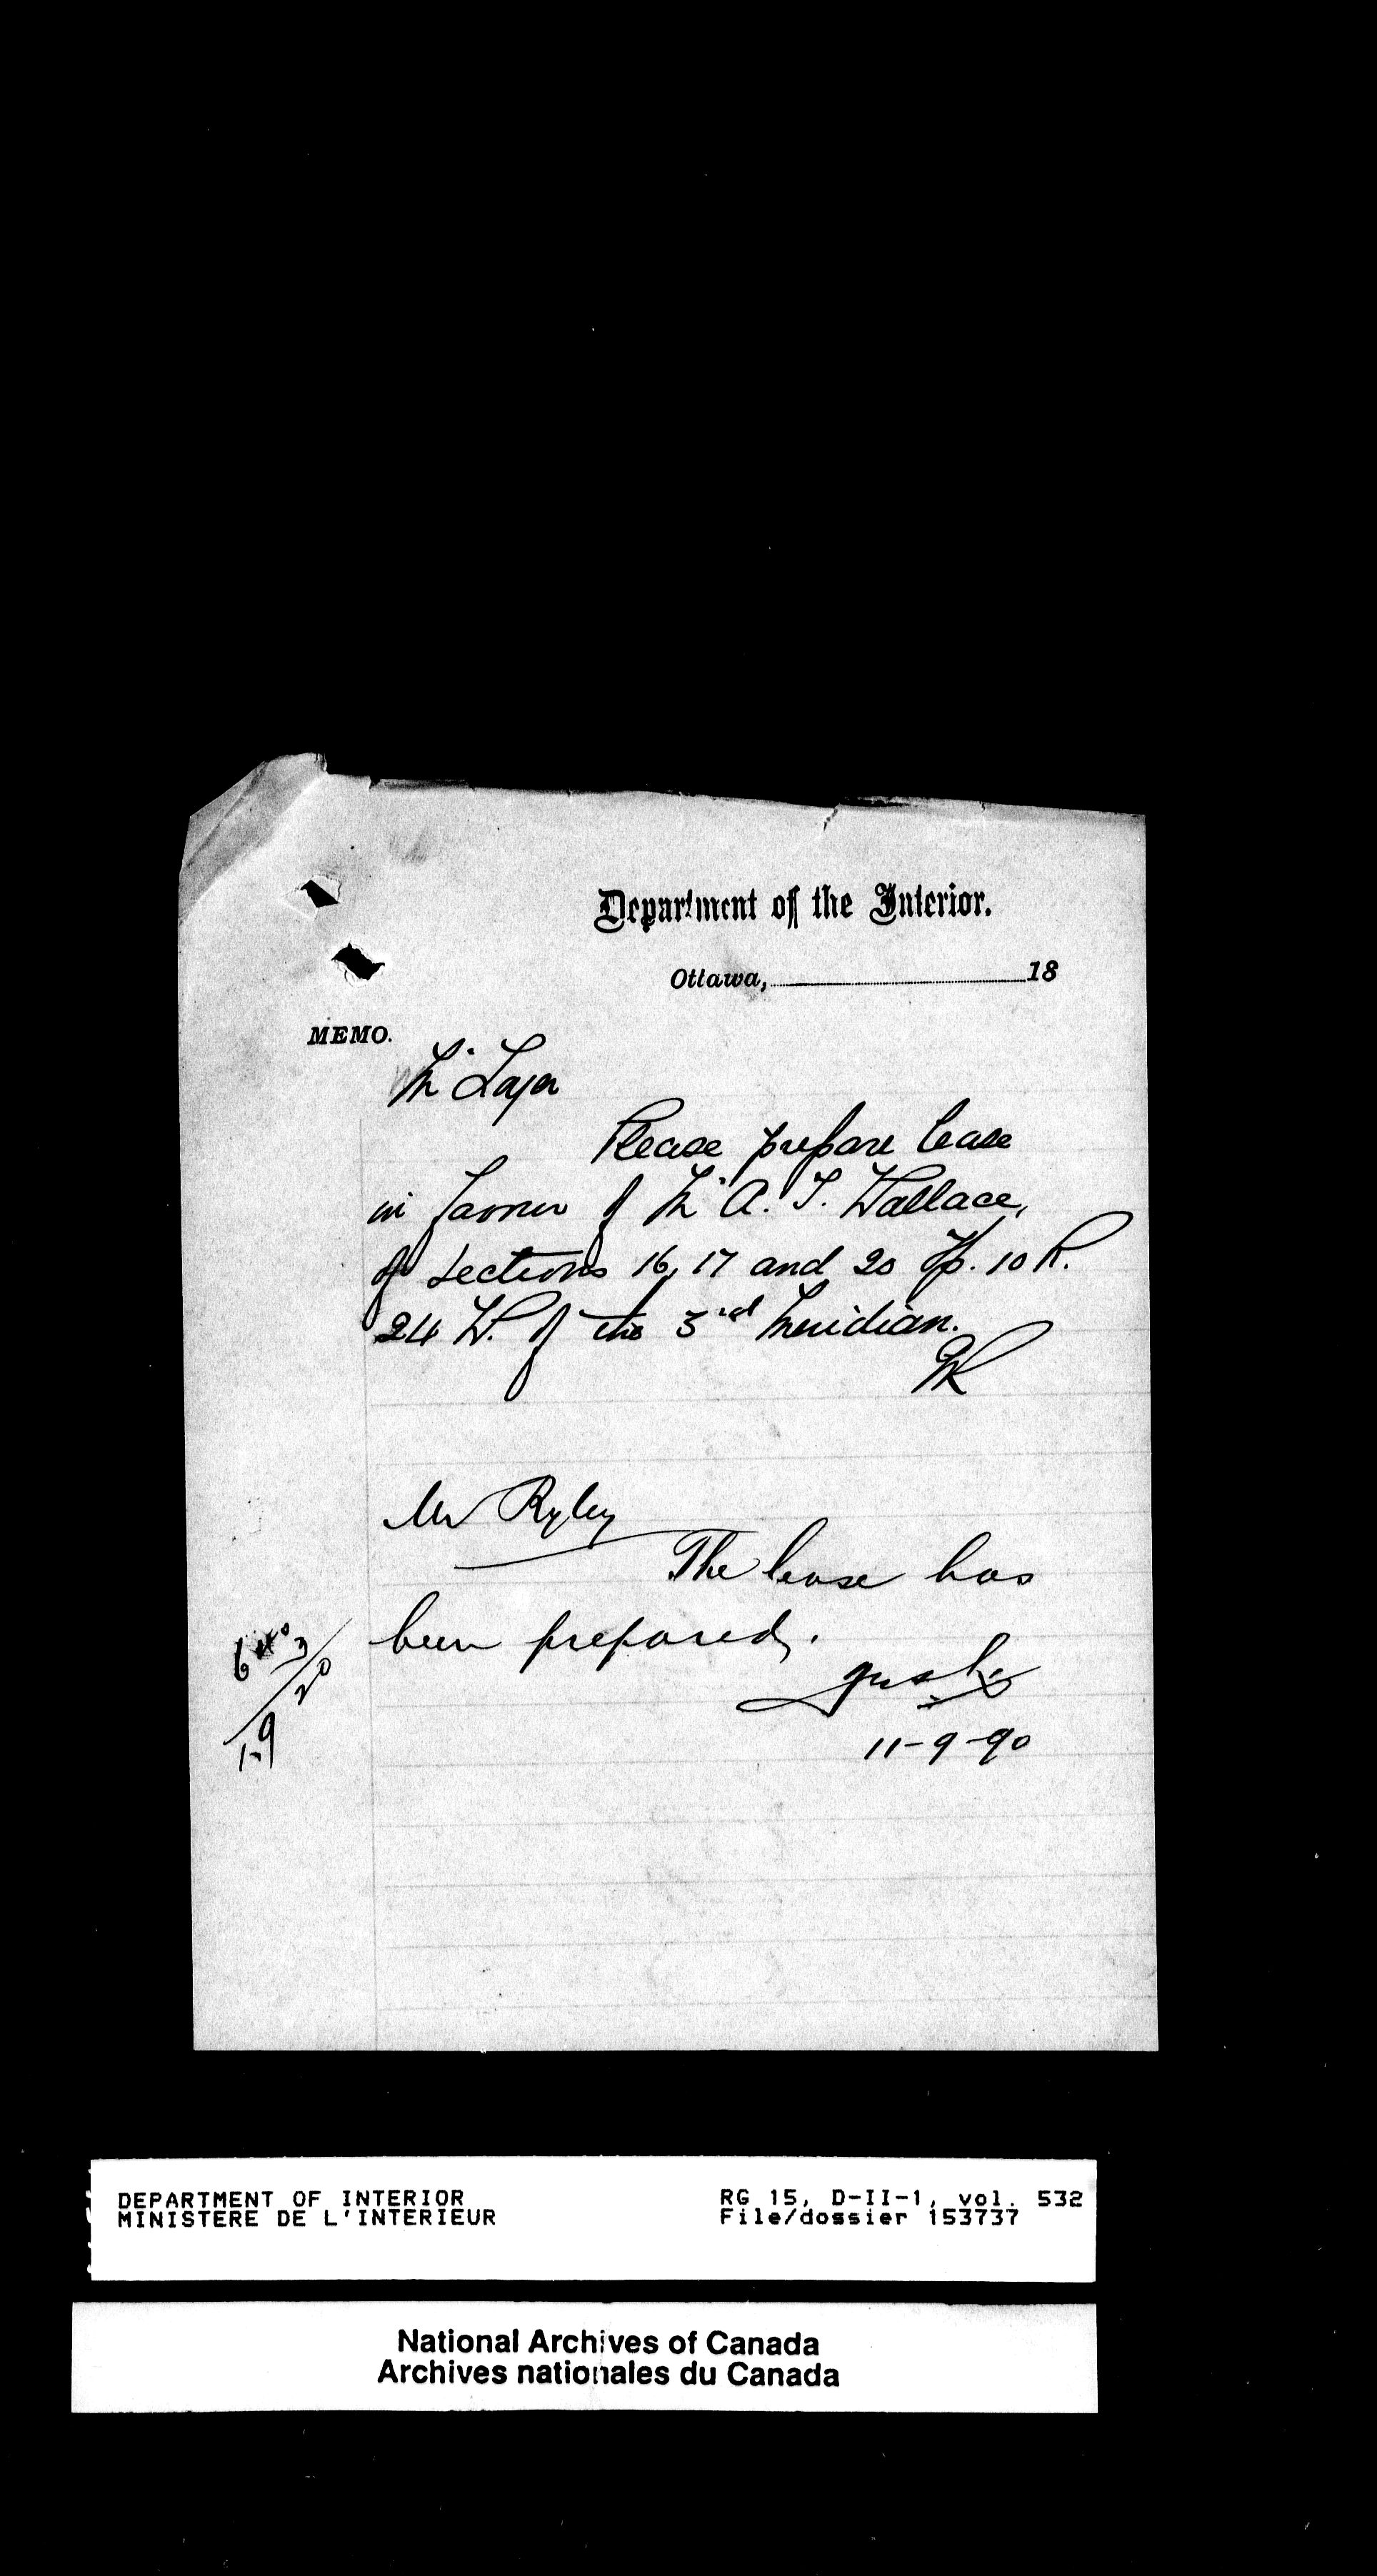 Department of the Interior.
Ottawa, 18
MEMO.
Mr
Please prepare lease
in favour of Mr A. T. Wallace,
of Sections 16, 17 and 20 Tp. 10 R.
24 W. of the 3rd Meridian.
Mr Ryley
The lease has
been prepared.
11-9-90
DEPARTMENT OF INTERIOR
MINISTERE DE L'INTERIEUR
RG 15, D-II-1, vol. 532
File/dossier 153737
National Archives of Canada
Archives nationales du Canada